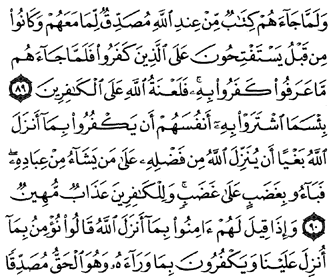 وَلَمَّا جَآءَهُمْ كِتَٰبٌ مِّنْ عِندِ ٱللَّهِ مُصَدِّقٌ لِّمَا مَعَهُمْ وَكَانُوا۟
مِن قَبْلُ يَسْتَفْتِحُونَ عَلَى ٱلَّذِينَ كَفَرُوا۟ فَلَمَّا جَآءَهُم
مَّا عَرَفُوا۟ كَفَرُوا۟ بِهِۦ ۚ فَلَعْنَةُ ٱللَّهِ عَلَى ٱلْكَٰفِرِينَ ٨٩
بِئْسَمَا ٱشْتَرَوْا۟ بِهِۦٓ أَنفُسَهُمْ أَن يَكْفُرُوا۟ بِمَآ أَنزَلَ
ٱللَّهُ بَغْيًا أَن يُنَزِّلَ ٱللَّهُ مِن فَضْلِهِۦ عَلَىٰ مَن يَشَآءُ مِنْ عِبَادِهِۦ ۖ
فَبَآءُو بِغَضَبٍ عَلَىٰ غَضَبٍ ۚ وَلِلْكَٰفِرِينَ عَذَابٌ مُّهِينٌ
٩٠ وَإِذَا قِيلَ لَهُمْ ءَامِنُوا۟ بِمَآ أَنزَلَ ٱللَّهُ قَالُوا۟ نُؤْمِنُ بِمَآ
أُنزِلَ عَلَيْنَا وَيَكْفُرُونَ بِمَا وَرَآءَهُۥ وَهُوَ ٱلْحَقُّ مُصَدِّقًا